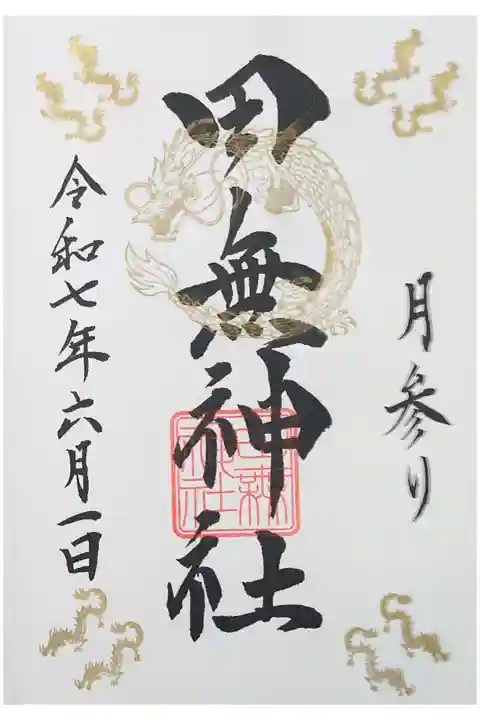 月参り
田無神社
令和七年六月一日